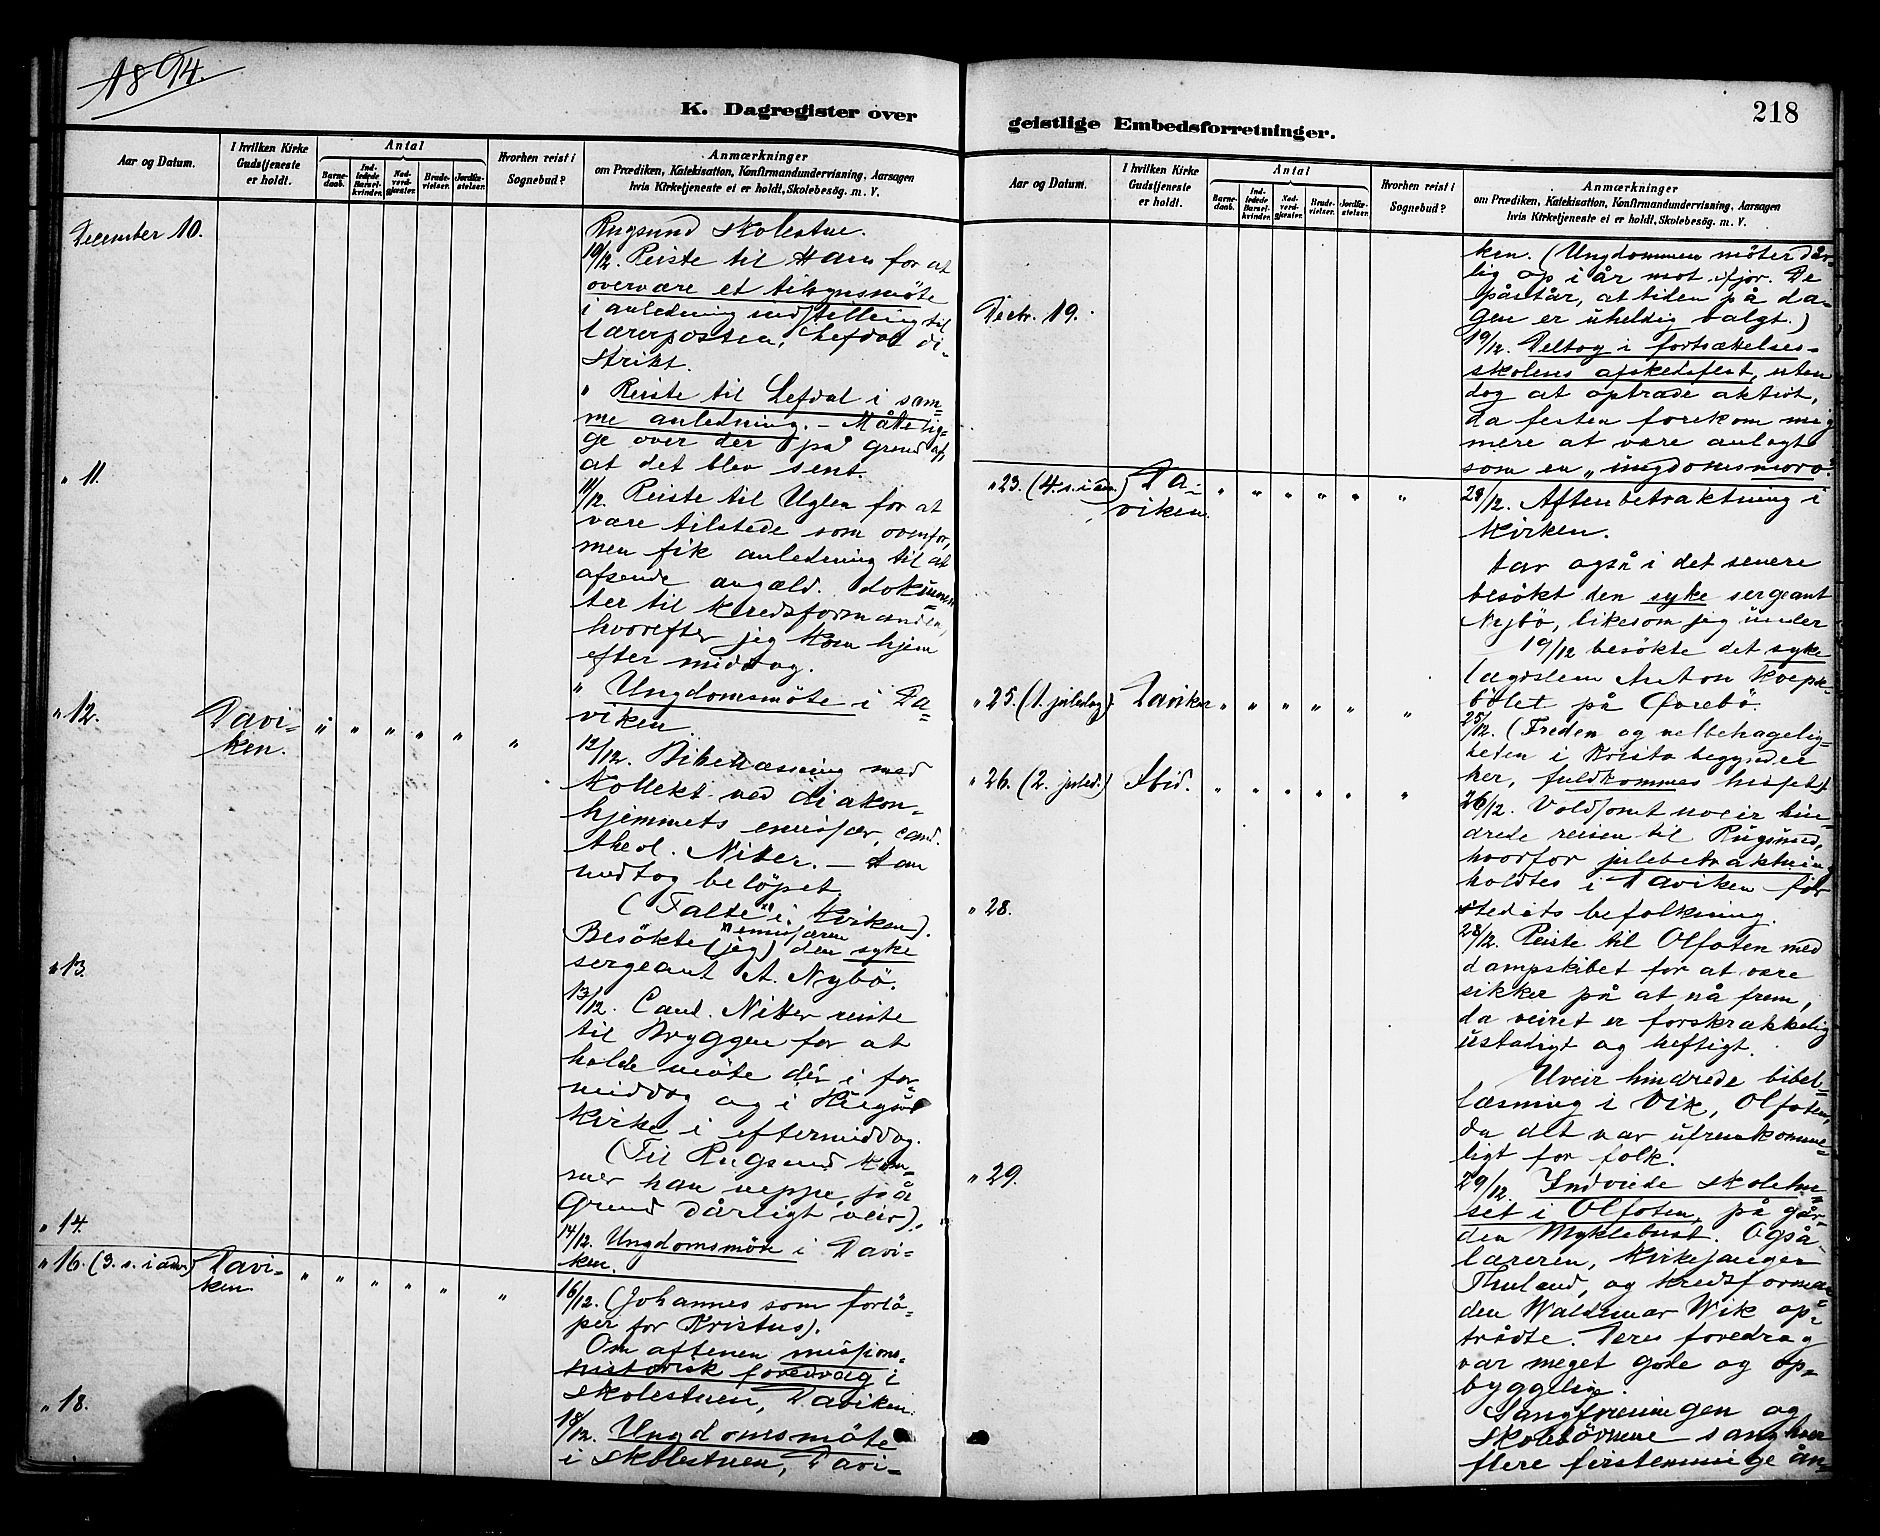 1894.
K. Dagregister over
Aar og Datum.
I hvilken Kirke
Gudstjeneste
er holdt.
Antal
Barne-
daab.
Ind-
ledede
Barsel-
kvinder.
Nad-
verd-
gjæster.
Brude-
vielser.
Jordfæ-
stelser.
Hvorhen reist i
Sognebud?
Anmærkninger
om Prædiken, Katekisation, Konfirmandundervisning, Aarsagen
hvis Kirketjeneste ei er holdt, Skolebesøg. m. V.
December 10.
Rugsund skolestue.
10/12. Reiste til Ham for at
overvære et tilsynsmöte
i anledning indstilling til
lærerposten, Lefdal di-
strikt.
" Reiste til Lefdal i sam-
me anledning. – Måtte lig-
ge over der på grund af,
at det blev sent.
" 11.
11/12. Reiste til Uglen for at
være tilstede som ovenfor,
men fik anledning til at
afsende angæld. dokumen-
ter til kredsformanden,
hvorefter jeg kom hjem
efter middag.
" Ungdomsmöte i Da-
viken.
" 12.
Davi-
ken.
" " " " " "
12/12. Bibellæsning med
kollekt ved diakon-
hjemmets emissær, cand.
theol. Nitter. – Han
modtog belöpet.
(Talte i kirken).
Besökte (jeg) "emissæren den syke
sergeant A. Nybö.
" 13.
13/12. Cand. Nitter reiste
til Bryggen for at
holde möte dér i for-
middag og i
kirke i eftermiddag.
(Til Rugsund kom-
mer han neppe på
grund dårligt veir).
" 14.
14/12. Ungdomsmöte i Davi-
ken.
" 16. (3. s. i adv.)
Davi-
ken.
" " " " " "
16/12. (Johannes som forlö-
per for Kristus).
Om aftenen missions-
historisk foredrag i
skolestuen, Daviken.
" 18.
18/12. Ungdomsmöte
i skolestuen, Davi-
218
geistlige Embedsforretninger.
Aar og Datum.
I hvilken Kirke
Gudstjeneste
er holdt.
Antal
Barne-
daab.
Ind-
ledede
Barsel-
kvinder.
Nad-
verd-
gjæster.
Brude-
vielser.
Jordfæ-
stelser.
Hvorhen reist i
Sognebud?
Anmærkninger
om Prædiken, Katekisation, Konfirmandundervisning, Aarsagen
hvis Kirketjeneste ei er holdt, Skolebesøg. m. V.
ken. (Ungdommen möter dår-
lig op i år mot ifjor. De
påstår, at tiden på da-
gen er uheldig valgt.)
Decbr. 19.
19/12. Deltog i fortsættelses-
skolens afskedsfest, uten
dog at optræde aktivt,
da festen forekom mig
mere at være anlagt
som en „ungdomsmoro".
" 23. (4. s. i adv.)
Da-
viken.
" " " " " "
23/12. Aftenbetraktning i
kirken.
Har også i det senere
besökt den syke sergeant
Nybö, likesom jeg under
19/12 besökte det syke
lægdslem Anton
på Övrebö.
" 25. (1. juledag).
Daviken
" " " " " "
25/12. (Freden og velbehagelig-
heden i Kristo begynder
her, fuldkommes hisset).
" 26. (2. juled.)
Ibid.
" " " " " "
26/12. Voldsomt uveir hin-
drede reisen til Rugsund,
hvorfor julebetraktning
holdtes i Daviken for
stedets befolkning.
" 28.
28/12. Reiste til Olfoten med
dampskibet for at være
sikker på at nå frem,
da veiret er forskrækkelig
ustadigt og heftigt.
Uveir hindrede bibel-
læsning i Vik, Olfoten,
da det var ufremkomme-
ligt for folk.
" 29.
29/12. Indviede skolehu-
set i Olfoten, på går-
den Myklebust. Også
læreren, kirkesanger
Thuland, og kredsforman-
den Waldemar Wik op-
trådte. Deres foredrag
var meget gode og op-
byggelig.
Sangforeningen og
skolebörnene sang hver
flere firstemmige ån-